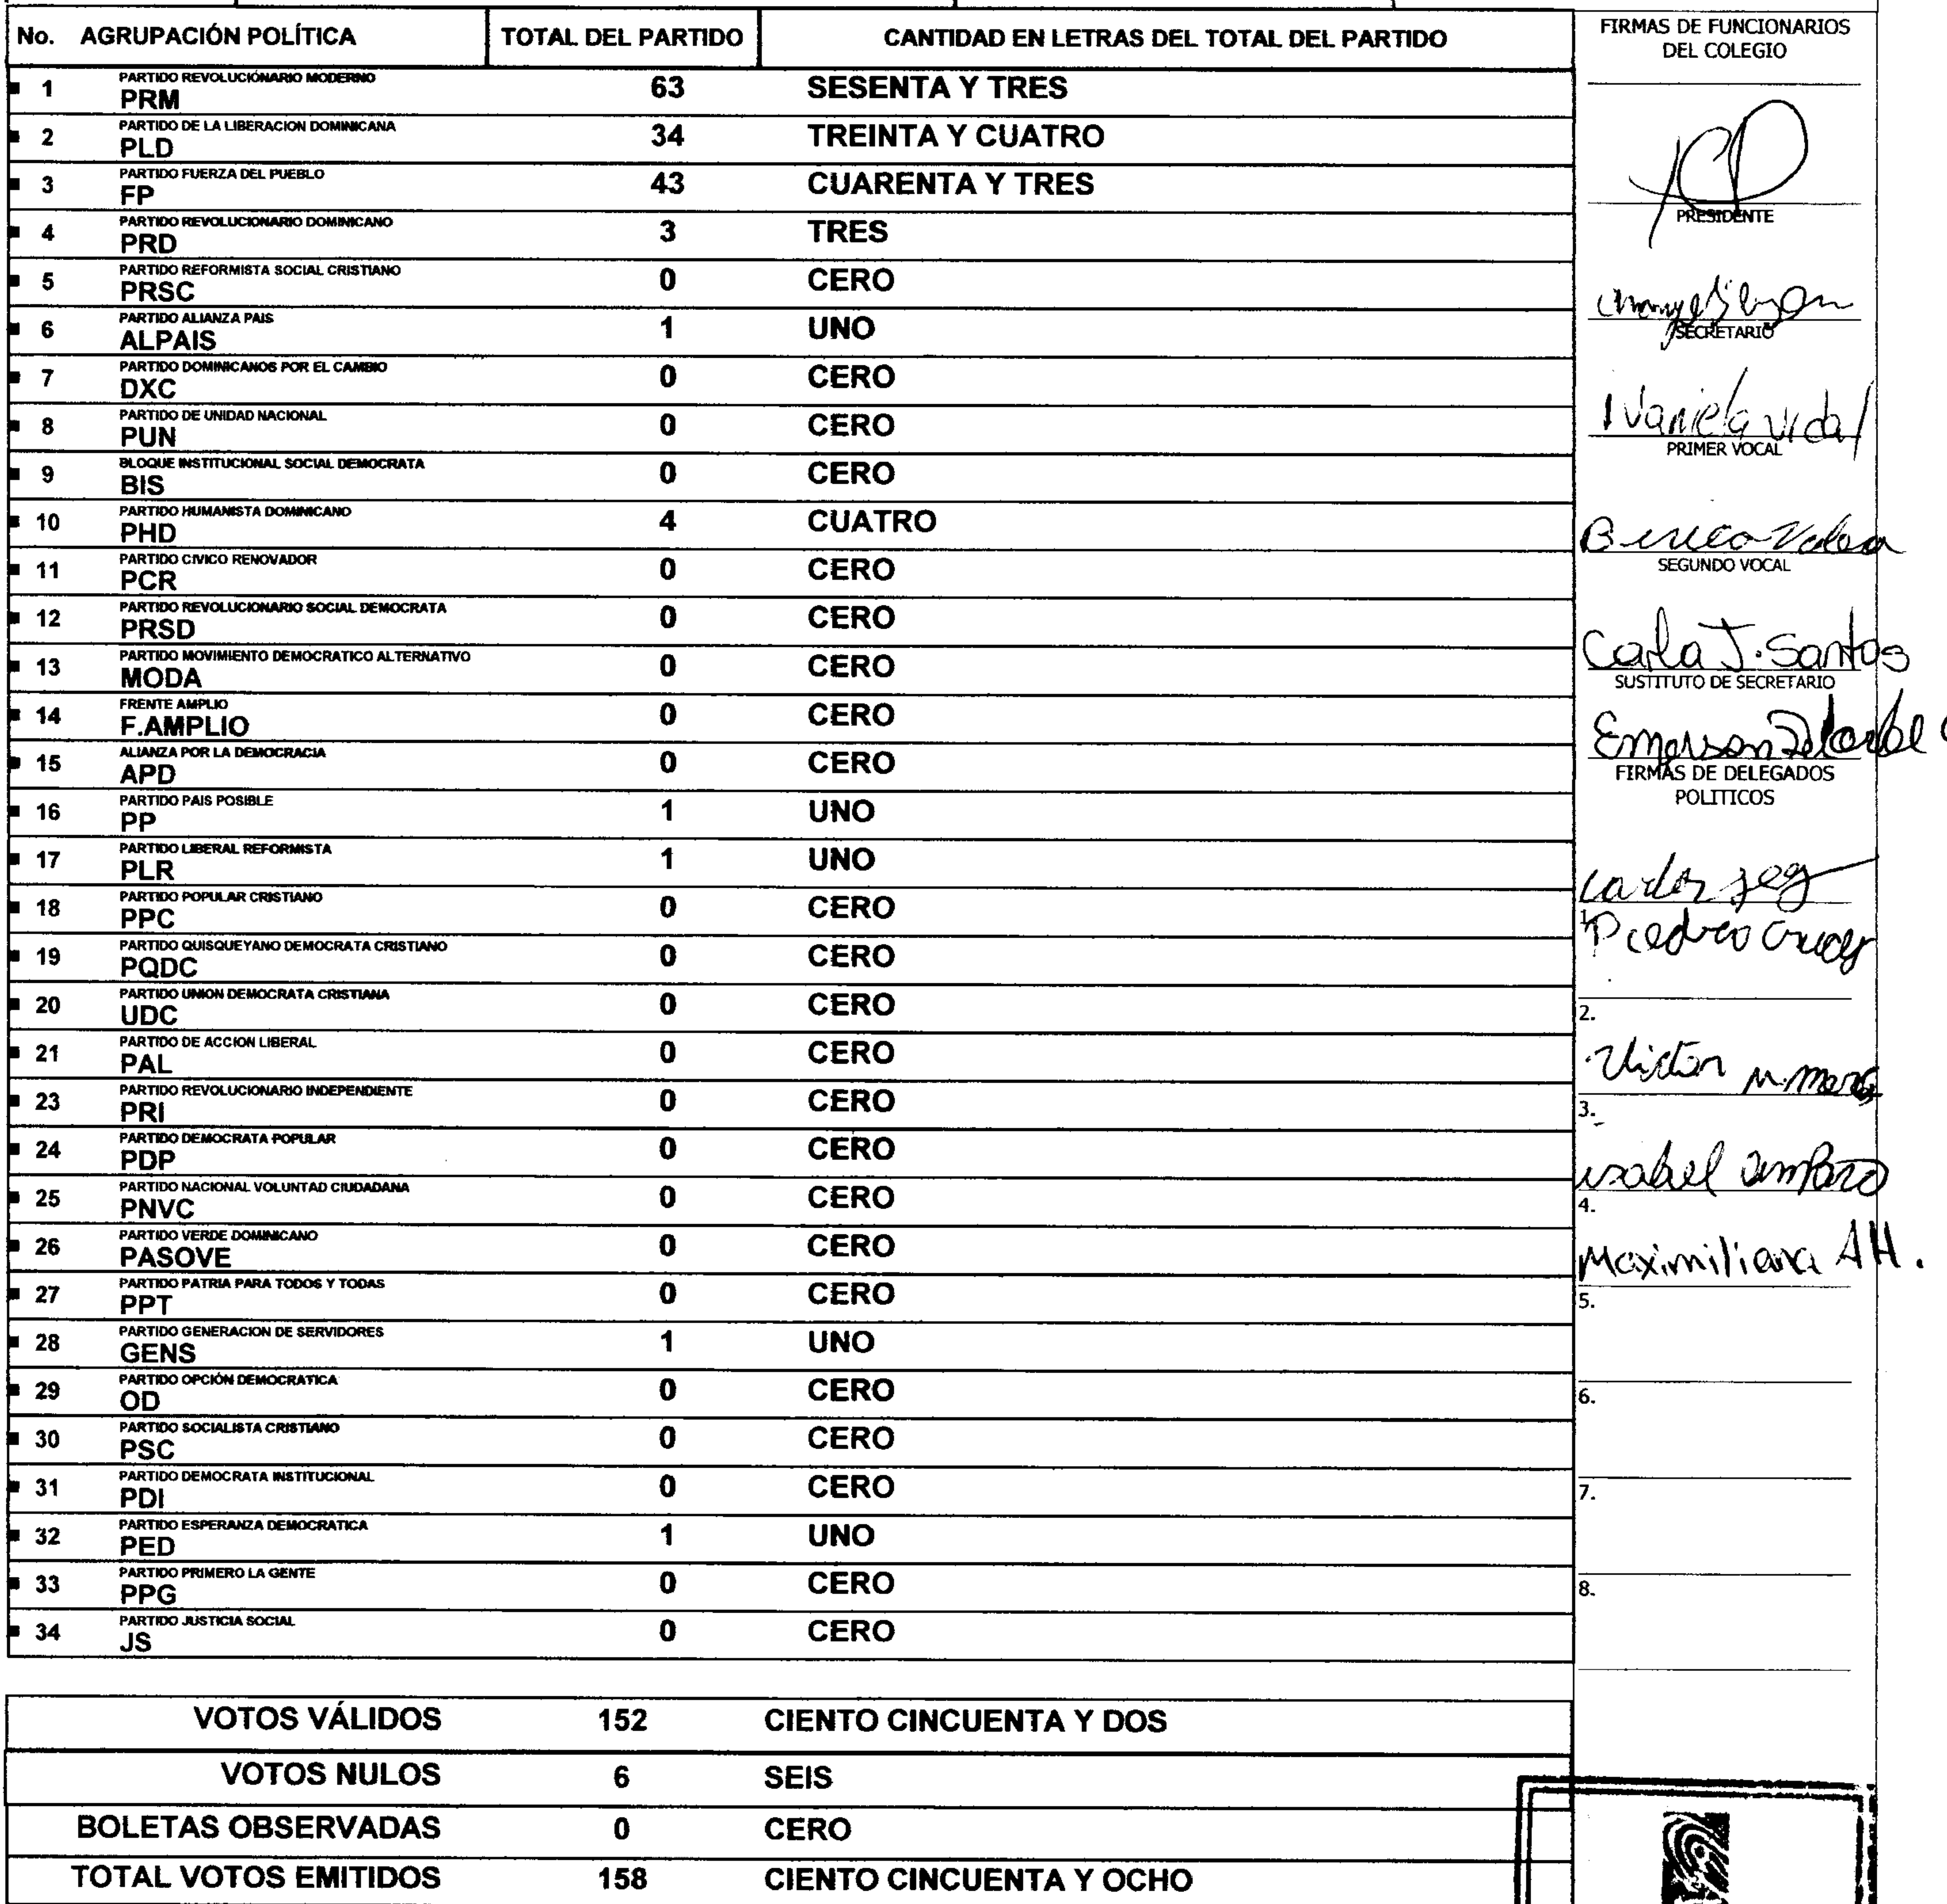 No. AGRUPACIÓN POLÍTICA TOTAL DEL PARTIDO CANTIDAD EN LETRAS DEL TOTAL DEL PARTIDO
PARTIDO REVOLUCIONARIO MODERNO
1 PRM 63 SESENTA Y TRES
PARTIDO DE LA LIBERACION DOMINICANA
2 PLD 34 TREINTA Y CUATRO
PARTIDO FUERZA DEL PUEBLO
3 FP 43 CUARENTA Y TRES
PARTIDO REVOLUCIONARIO DOMINICANO
4 PRD 3 TRES
PARTIDO REFORMISTA SOCIAL CRISTIANO
5 PRSC 0 CERO
PARTIDO ALIANZA PAIS
6 ALPAIS 1 UNO
PARTIDO DOMINICANOS POR EL CAMBIO
7 DXC 0 CERO
PARTIDO DE UNIDAD NACIONAL
8 PUN 0 CERO
BLOQUE INSTITUCIONAL SOCIAL DEMOCRATA
9 BIS 0 CERO
PARTIDO HUMANISTA DOMINICANO
10 PHD 4 CUATRO
PARTIDO CIVICO RENOVADOR
11 PCR 0 CERO
PARTIDO REVOLUCIONARIO SOCIAL DEMOCRATA
12 PRSD 0 CERO
PARTIDO MOVIMIENTO DEMOCRATICO ALTERNATIVO
13 MODA 0 CERO
FRENTE AMPLIO
14 F.AMPLIO 0 CERO
ALIANZA POR LA DEMOCRACIA
15 APD 0 CERO
PARTIDO PAIS POSIBLE
16 PP 1 UNO
PARTIDO LIBERAL REFORMISTA
17 PLR 1 UNO
PARTIDO POPULAR CRISTIANO
18 PPC 0 CERO
PARTIDO QUISQUEYANO DEMOCRATA CRISTIANO
19 PQDC 0 CERO
PARTIDO UNION DEMOCRATA CRISTIANA
20 UDC 0 CERO
PARTIDO DE ACCION LIBERAL
21 PAL 0 CERO
PARTIDO REVOLUCIONARIO INDEPENDIENTE
23 PRI 0 CERO
PARTIDO DEMOCRATA POPULAR
24 PDP 0 CERO
PARTIDO NACIONAL VOLUNTAD CIUDADANA
25 PNVC 0 CERO
PARTIDO VERDE DOMINICANO
26 PASOVE 0 CERO
PARTIDO PATRIA PARA TODOS Y TODAS
27 PPT 0 CERO
PARTIDO GENERACION DE SERVIDORES
28 GENS 1 UNO
PARTIDO OPCIÓN DEMOCRATICA
29 OD 0 CERO
PARTIDO SOCIALISTA CRISTIANO
30 PSC 0 CERO
PARTIDO DEMOCRATA INSTITUCIONAL
31 PDI 0 CERO
PARTIDO ESPERANZA DEMOCRATICA
32 PED 1 UNO
PARTIDO PRIMERO LA GENTE
33 PPG 0 CERO
PARTIDO JUSTICIA SOCIAL
34 JS 0 CERO
VOTOS VÁLIDOS 152 CIENTO CINCUENTA Y DOS
VOTOS NULOS 6 SEIS
BOLETAS OBSERVADAS 0 CERO
TOTAL VOTOS EMITIDOS 158 CIENTO CINCUENTA Y OCHO
FIRMAS DE FUNCIONARIOS
DEL COLEGIO
PRESIDENTE
SECRETARIO
vidal
PRIMER VOCAL
SEGUNDO VOCAL
Carla J. Santos
SUSTITUTO DE SECRETARIO
Emerson
FIRMAS DE DELEGADOS
POLITICOS
1.
2.
3.
isabel amparo
4.
Maximiliana AH.
5.
6.
7.
8.